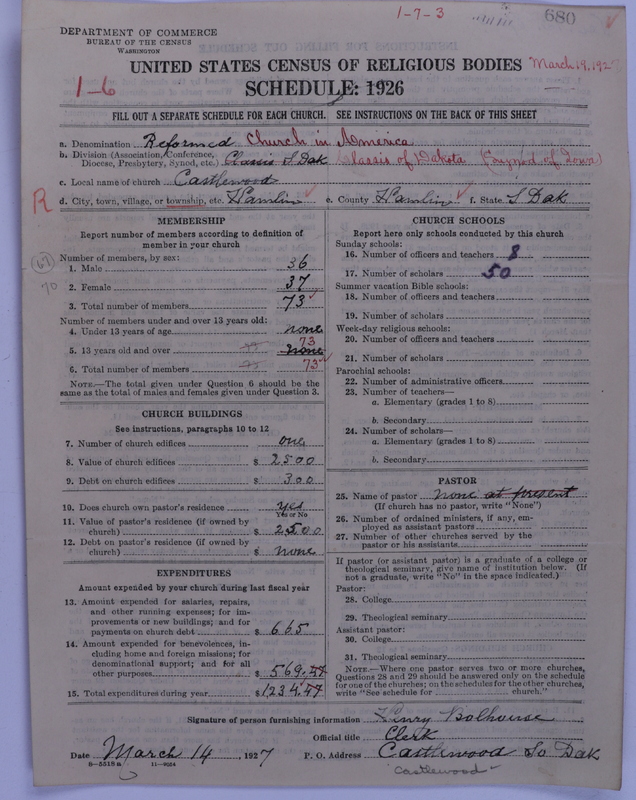 1-7-3
680
DEPARTMENT OF COMMERCE
BUREAU OF THE CENSUS
WASHINGTON
UNITED STATES CENSUS OF RELIGIOUS BODIES
March 19, 192
1-6
SCHEDULE: 1926
FILL OUT A SEPARATE SCHEDULE FOR EACH CHURCH. SEE INSTRUCTIONS ON THE BACK OF THIS SHEET
a. Denomination Reformed Church in America
b. Division (Association, Conference,
Diocese, Presbytery, Synod, etc.) Classis S Dak Classis of Dakota (Synod of Iowa)
c. Local name of church Castlewood
R
d. City, town, village, or township, etc. Hamlin e. County Hamlin f. State S Dak
MEMBERSHIP
Report number of members according to definition of
member in your church
Number of members, by sex:
1. Male 36
2. Female 37
3. Total number of members 73
Number of members under and over 13 years old:
4. Under 13 years of age none
5. 13 years old and over none 73
6. Total number of members 73
NOTE.—The total given under Question 6 should be the
same as the total of males and females given under Question 3.
CHURCH BUILDINGS
See instructions, paragraphs 10 to 12
7. Number of church edifices one
8. Value of church edifices $ 2500
9. Debt on church edifices $ 300
10. Does church own pastor's residence yes
Yes or No
11. Value of pastor's residence (if owned by
church) $ 2500
12. Debt on pastor's residence (if owned by
church) $ none
EXPENDITURES
Amount expended by your church during last fiscal year
13. Amount expended for salaries, repairs,
and other running expenses; for im-
provements or new buildings; and for
payments on church debt $ 665
14. Amount expended for benevolences, in-
cluding home and foreign missions; for
denominational support; and for all
other purposes $ 569.47
15. Total expenditures during year $ 1234.47
CHURCH SCHOOLS
Report here only schools conducted by this church
Sunday schools:
16. Number of officers and teachers 8
17. Number of scholars 50
Summer vacation Bible schools:
18. Number of officers and teachers
19. Number of scholars
Week-day religious schools:
20. Number of officers and teachers
21. Number of scholars
Parochial schools:
22. Number of administrative officers
23. Number of teachers—
a. Elementary (grades 1 to 8)
b. Secondary
24. Number of scholars—
a. Elementary (grades 1 to 8)
b. Secondary
PASTOR
25. Name of pastor none at present
(If church has no pastor, write "None")
26. Number of ordained ministers, if any, em-
ployed as assistant pastors
27. Number of other churches served by the
pastor or his assistants
If pastor (or assistant pastor) is a graduate of a college or
theological seminary, give name of institution below. (If
not a graduate, write "No" in the space indicated.)
Pastor:
28. College
29. Theological seminary
Assistant pastor:
30. College
31. Theological seminary
NOTE.—Where one pastor serves two or more churches,
Questions 28 and 29 should be answered only on the schedule
for one of the churches; on the schedules for the other churches,
write "See schedule for church."
Signature of person furnishing information Henry Bolhouse
Official title Clerk
Date March 14, 1927 P. O. Address Castlewood So Dak
8-5518a 11-9034
"Castlewood"